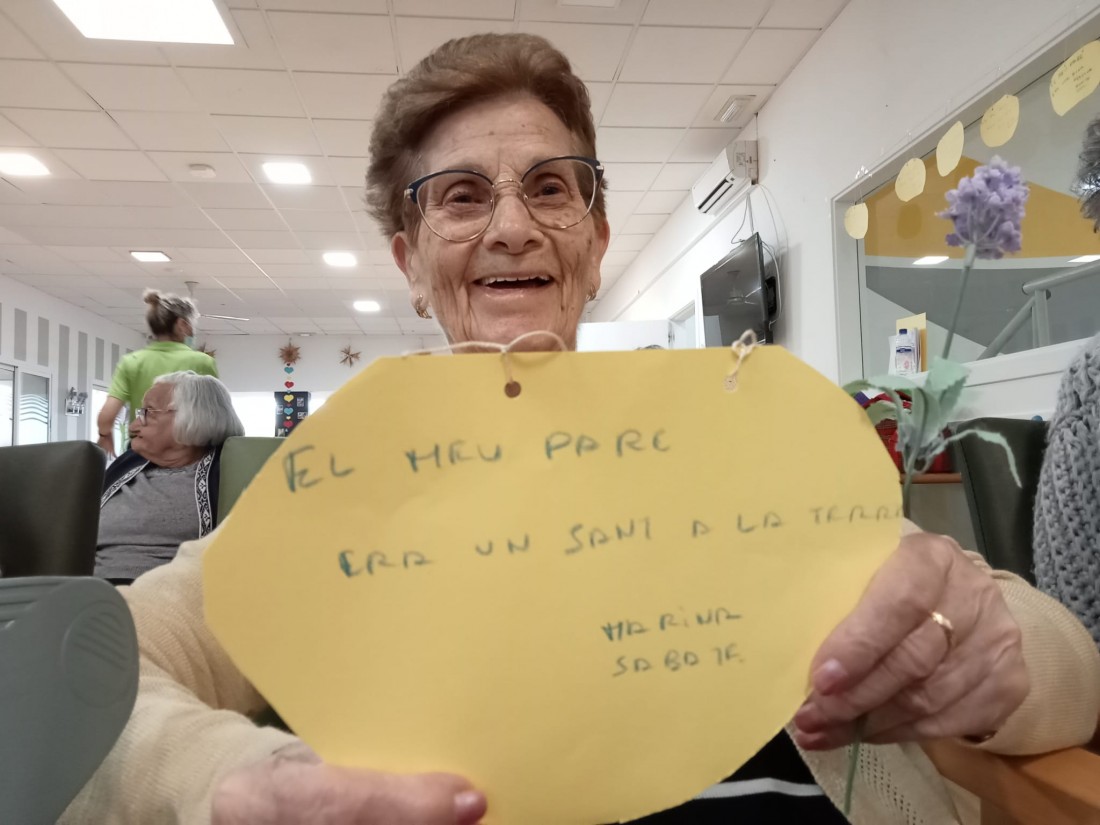 EL MEU PARE
ERA UN SANT A LA TERRA
MARINA
SABATE